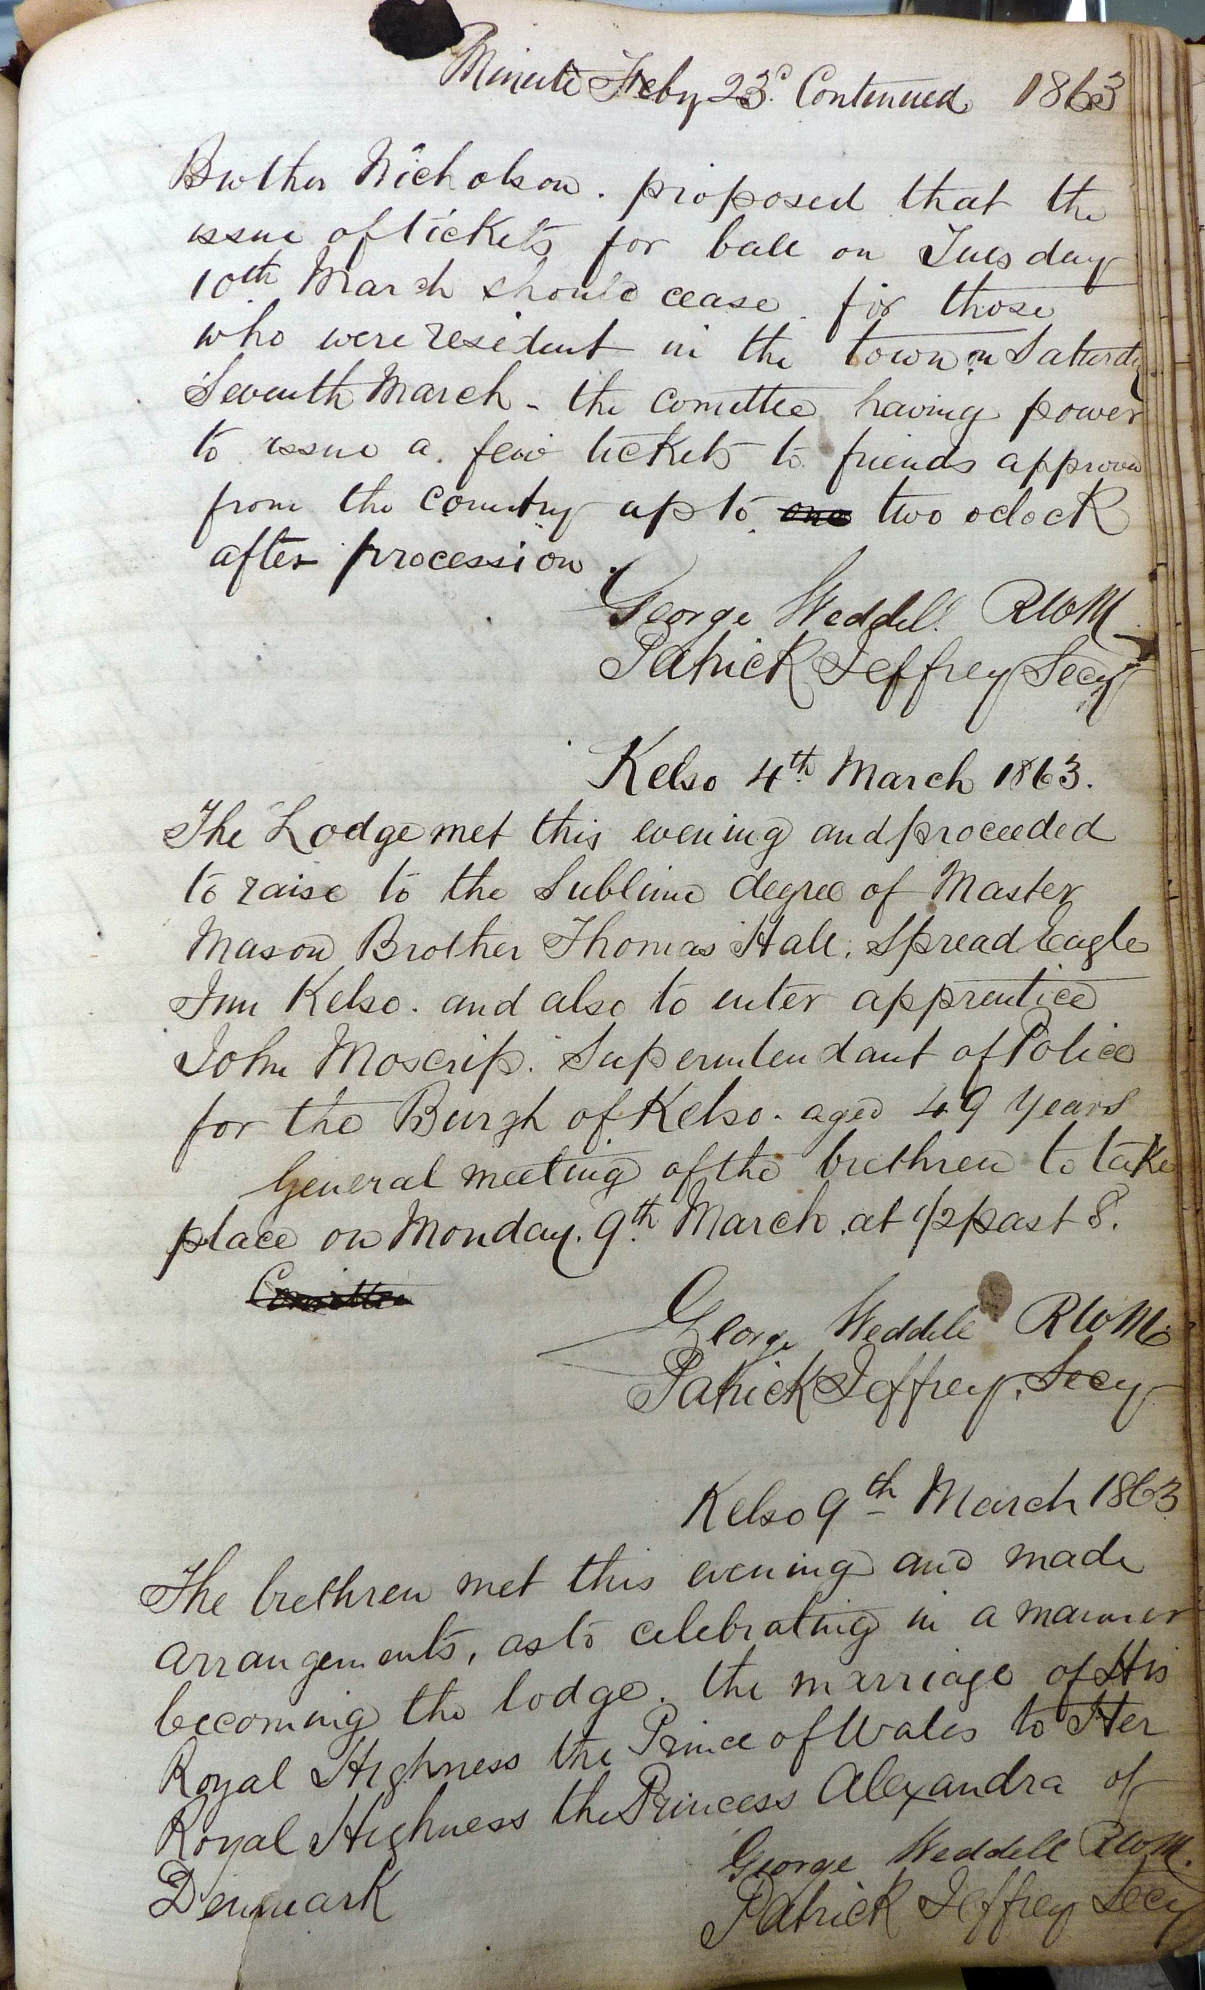 Minute Feby 23d. Continued 1863
Brother Nicholson. proposed that the
issue of tickets for ball on Tuesday
10th March should cease. for those
who were resident in the town on Saturdy
Seventh March - the comittee having power
to issue a few tickets to friends approved
from the country up to one two oclock
after procession.
George Weddell. RWM
Patrick Jeffrey Secy
Kelso 4th March 1863.
The Lodge met this evening and proceeded
to raise to the Sublime degree of Master
Mason Brother Thomas Hall. Spread Eagle
Inn Kelso. and also to enter apprentice
John Moscrip. Superintendant of Police
for the Burgh of Kelso. aged 49 years
General meeting of the brethren to take
place on Monday. 9th. March. at 1/2 past 8.
Comittee
George Weddell RWM.
Patrick Jeffrey, Secy
Kelso 9th March 1863
The brethren met this evening and made
arrangements, as to celebrating in a manner
becoming the lodge. the marriage of His
Royal Highness the Prince of Wales to Her
Royal Highness the Princess Alexandra of
Denmark
George Weddell RWM.
Patrick Jeffrey Secy